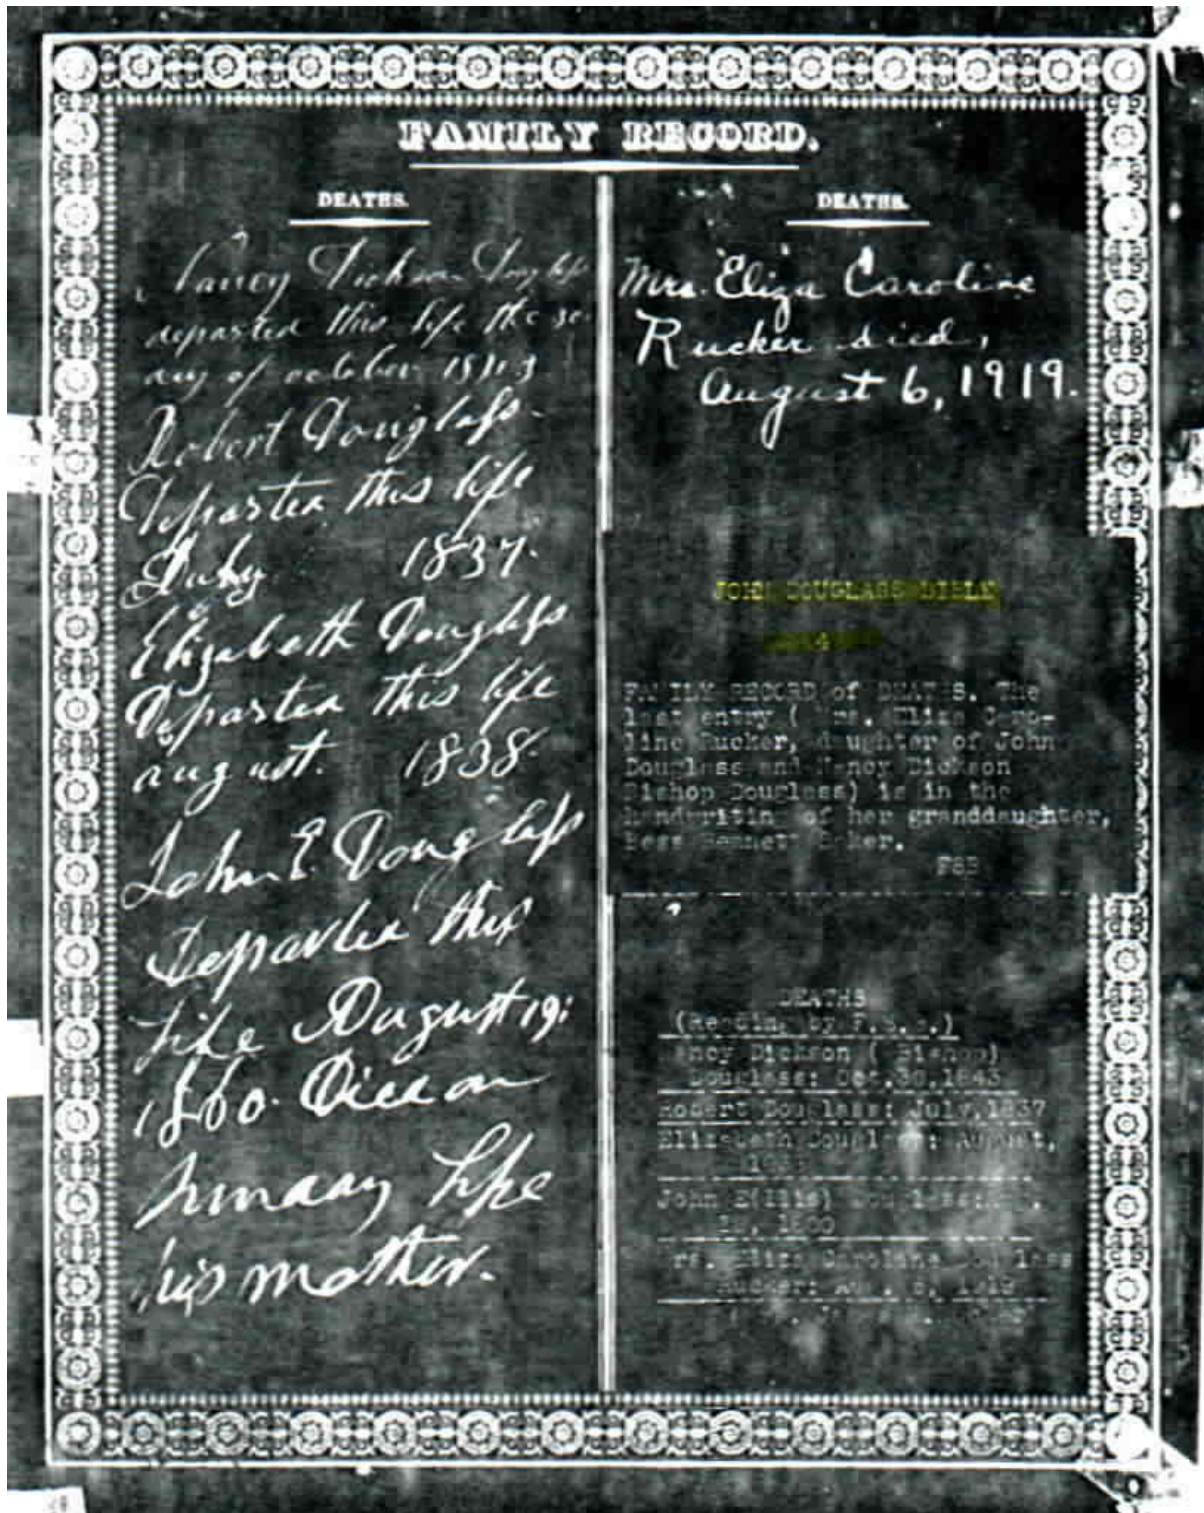 FAMILY RECORD.
DEATHS.
Nancy Dickson Douglass
departed this life the 30
day of october 1843
Robert Douglass.
Departed this life
July 1837.
Elizabeth Douglass
Departed this life
august. 1838.
John E. Douglass
Departed this
Life August 19:
1860. Died on
sunday like
his mother.
DEATHS.
Mrs. Eliza Caroline
Rucker died,
August 6, 1919.
JOHN DOUGLASS BIBLE
4
FAMILY RECORD of DEATHS. The
last entry ( Mrs. Eliza Caro-
line Rucker, daughter of John
Douglass and Nancy Dickson
Bishop Douglass) is in the
handwriting of her granddaughter,
Bess Bennett Baker.
DEATHS
(Reading by
Nancy Dickson ( Bishop)
Douglass: Oct.30,1843
Robert Douglass: July,1837
Elizabeth Douglass: August,
John E(llis) Douglass:
19, 1860
Mrs. Eliza Caroline Douglass
Rucker: Aug. 6, 1919